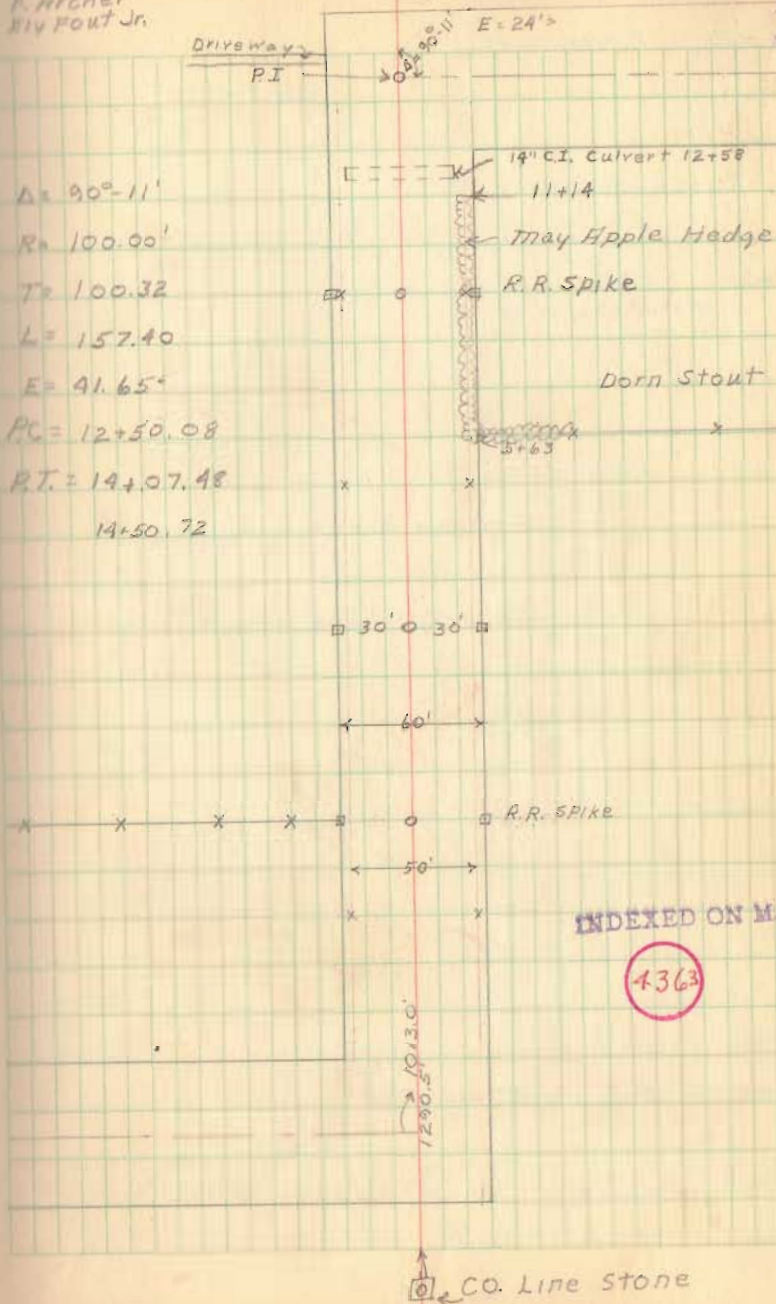 P. Archer
Fout Jr.
Driveway
P.I
Δ=90°-11'
E=24'>
14" C.I. Culvert 12+58
11+14
May Apple Hedge
R.R. Spike
Dorn Stout
5+63
Δ= 90°-11'
R= 100.00'
T= 100.32
L= 157.40
E= 41.65'
P.C= 12+50.08
P.T.= 14+07.48
14+50.72
30' 30'
60'
R.R. SPIKE
50'
INDEXED ON M
4363
10+3.0'
1290.5'
CO. Line Stone